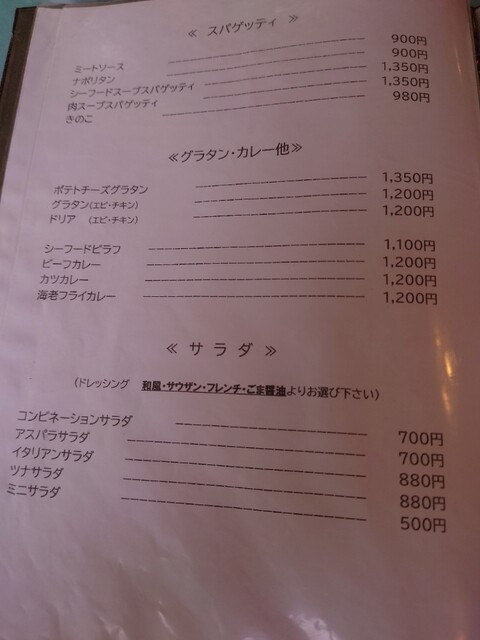 ≪ スパゲッティ ≫
ミートソース 900円
ナポリタン 900円
シーフードスープスパゲッティ 1,350円
肉スープスパゲッティ 1,350円
きのこ 980円
≪グラタン・カレー他≫
ポテトチーズグラタン 1,350円
グラタン(エビ・チキン) 1,200円
ドリア (エビ・チキン) 1,200円
シーフードピラフ 1,100円
ビーフカレー 1,200円
カツカレー 1,200円
海老フライカレー 1,200円
≪ サ ラ ダ ≫
(ドレッシング 和風・サウザン・フレンチ・ごま醤油よりお選び下さい)
コンビネーションサラダ 700円
アスパラサラダ 700円
イタリアンサラダ 880円
ツナサラダ 880円
ミニサラダ 500円